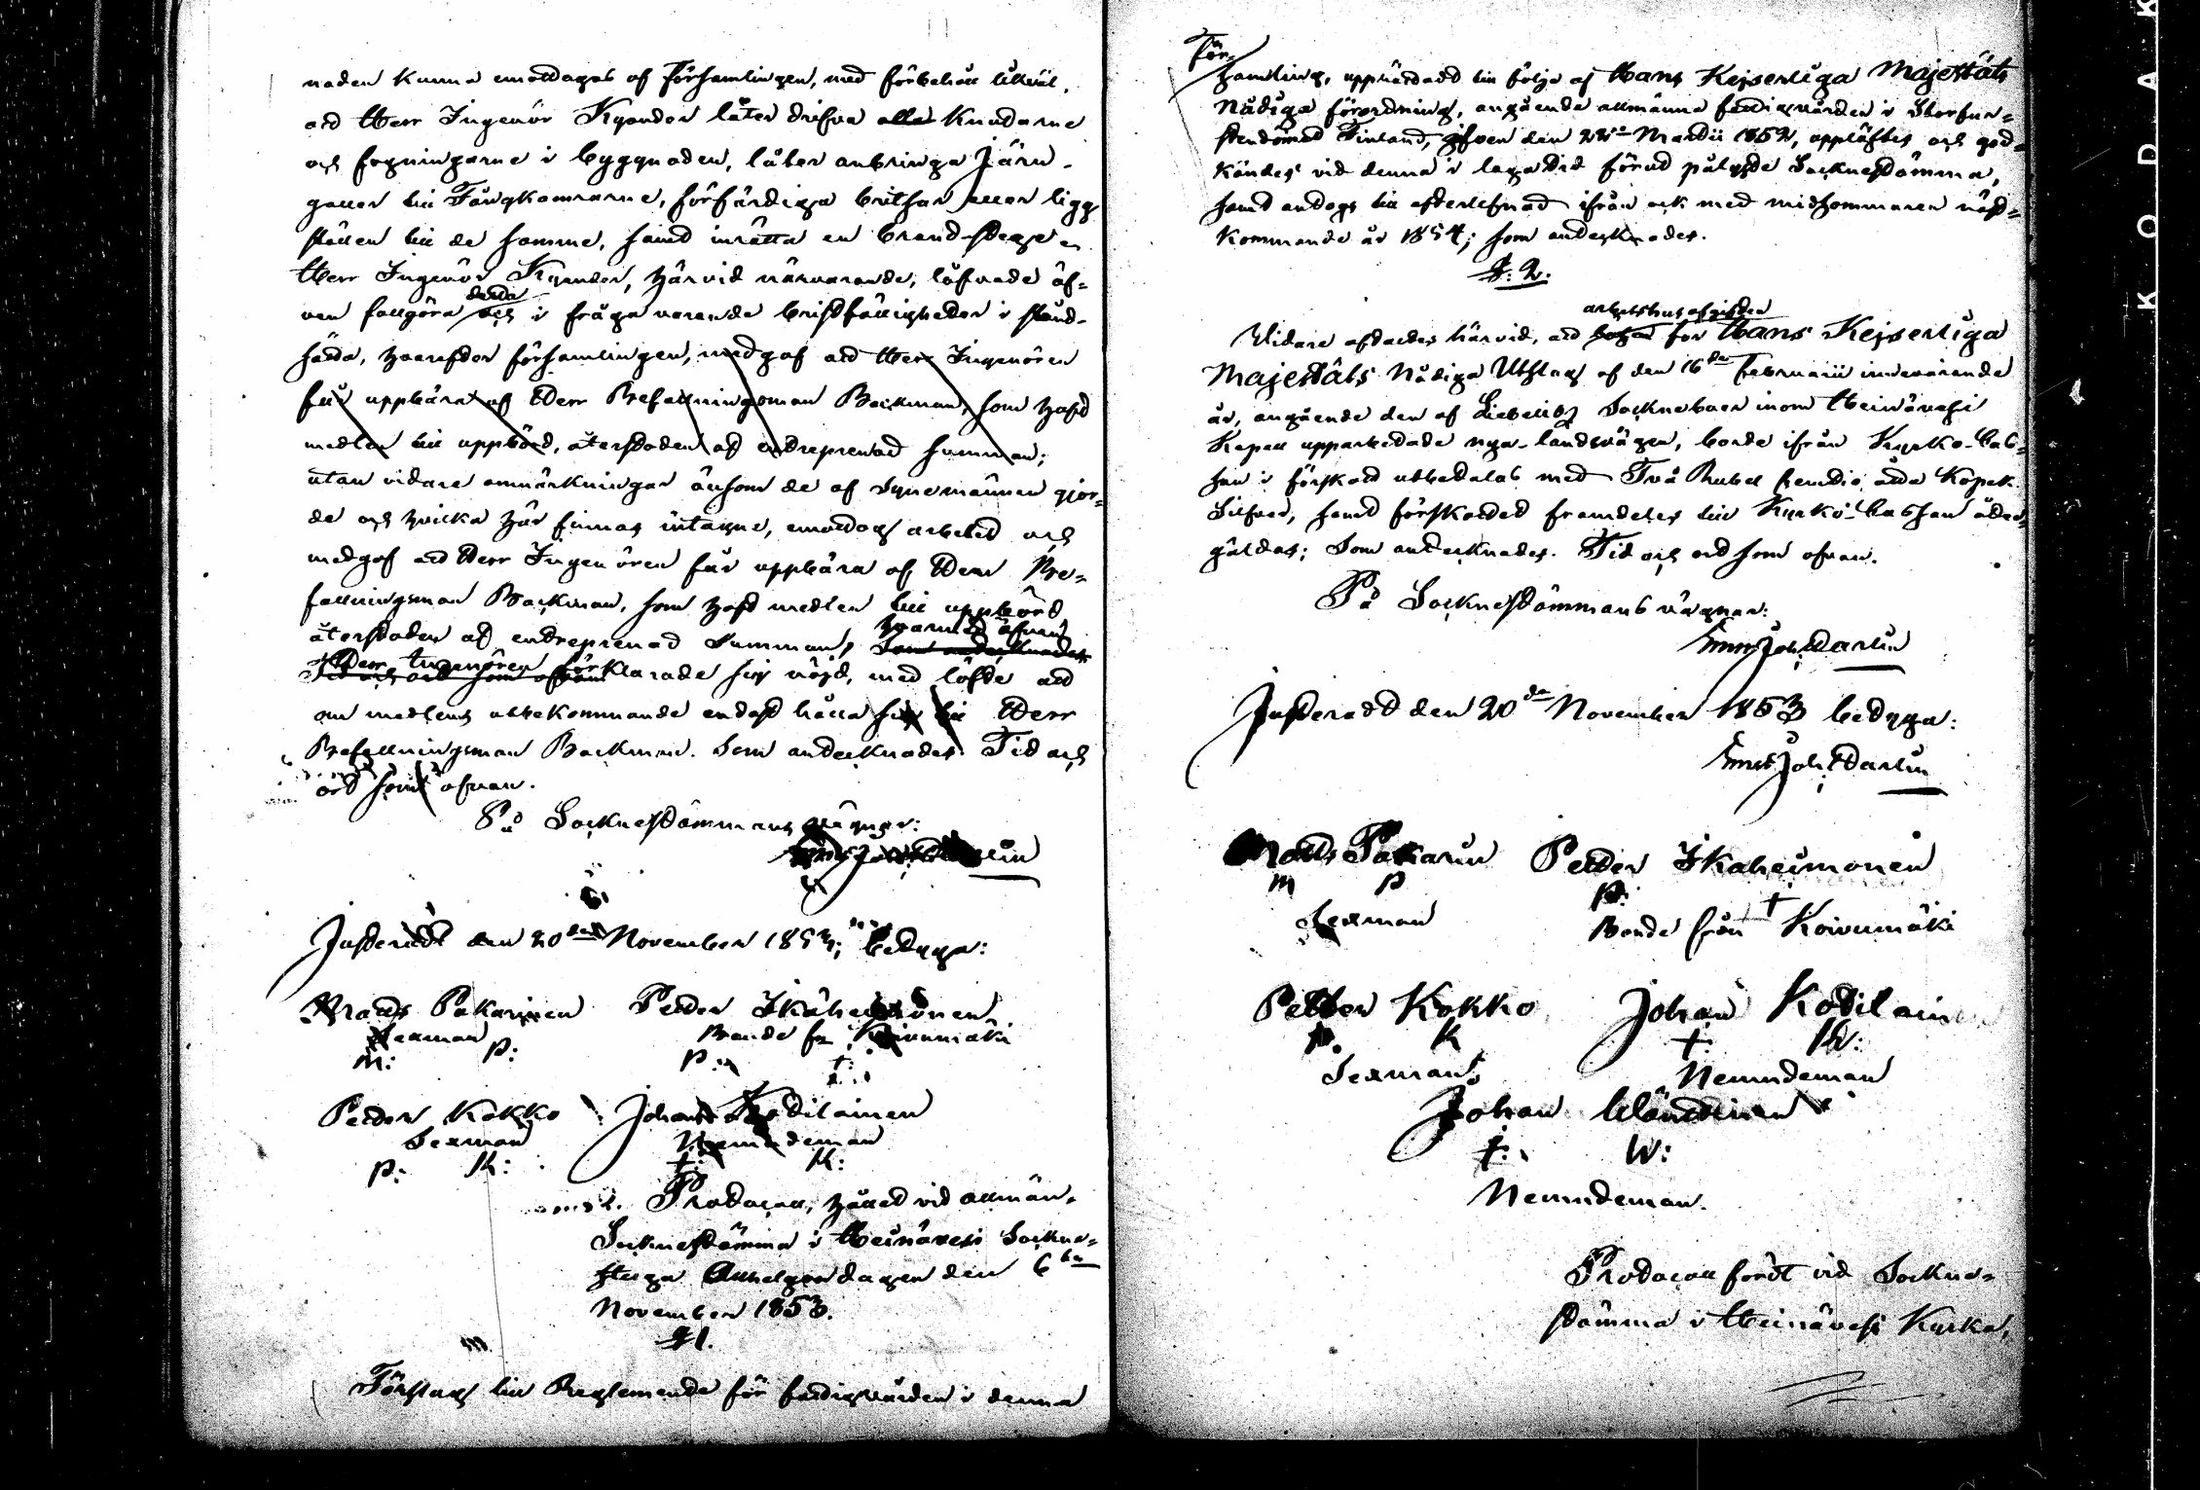 naden kunna emottagas af Församlingen, med förbehåll likväl,
att Herr Ingenör Kyander låter drifva alla knutarne
och fogningarne i byggnaden, låter anbringa Järn-
galler till Fångkamrarne, förfärdiga britsar eller ligg
ställen till de samme, samt inrätta en brandstege.
Herr Ingenör Kyander, härvid närvarande, låfvade äf-
ven fullgöra detta och i fråga varande bristfälligheter i stånd-
sätta, hvarefter församlingen, medgaf att Herr Ingenören
får uppbära af Herr Befallningsman Backman, som haft
medlen till uppbörd, återstoden af entreprenad summan;
utan vidare anmärkningar än som de af Synemännen gjor-
de och hvilka här finnas intagne, emottogs arbetet och
medgaf att Herr Ingenören får uppbära af Herr Be-
fallningsman Backman, som haft medlen till uppbörd
återstoden af entreprenad Summan, som antecknades hvarmed äfven
Tid och ort som ofvan Herr Ingenören förklarade sig nöjd, med löfte att
om medlens utbekommande endast hålla sig till Herr
Befallningsman Backman. Som antecknades Tid och
ort som ofvan.
På Socknestämmans vägnar:
Justeradt den 20de November 1853, betyga:
Mats Pakarinen Petter Ikäheimonen
Sexman Bonde fr Koivumäki
M: P: P: †:
Petter Kokko Johan Kotilainen
Sexman Nämndeman
P: K: †: K:
Protocoll, hållet vid allmän
Socknestämma i Heinävesi Sockne-
stuga Allhelgondagen den 6te
November 1853.
§1.
Förslag till Reglemente för fattigvården i denna
För-
samling, upprättadt till följe af Hans Kejserliga Majestäts
Nådiga förordning, angående allmänna fattigvården i Storfur-
stendömet Finland, gifven den 22dra Martii 1852, upplästes och god-
kändes vid denna i laga tid förut pålyste Socknestämma,
samt antogs till efterlefnad ifrån och med midsommaren näst-
kommande år 1854; som antecknades.
§. 2.
Vidare aftaltes härvid, att arbetshusafgiften för Hans Kejserliga
Majestäts Nådiga Utslag af den 16de Februarii innevarande
år, angående den af Liebelitz Sockneboer inom Heinävesi
Kapell upparbetade nya landsvägen, borde ifrån Kyrko-Cas-
san i förskott utbetalas med Två Rubel femtio åtta Kopek
Silfver, samt förskottet framdeles till Kyrko-Cassan åter-
gäldas; Som antecknades. Tid och ort som ofvan.
På Socknestämmans vägnar:
Justeradt den 20de November 1853 betyga:
Mats Pakarin Petter Ikäheimonen
M P P: †
Sexman Bonde från Koivumäki
Petter Kokko Johan Kotilainen
P. K †: K:
Sexman Nemndeman
Johan Wänttinen
†: W:
Nemndeman.
Protocoll fördt vid Sockne-
stämma i Heinävesi Kyrka,
KODAK